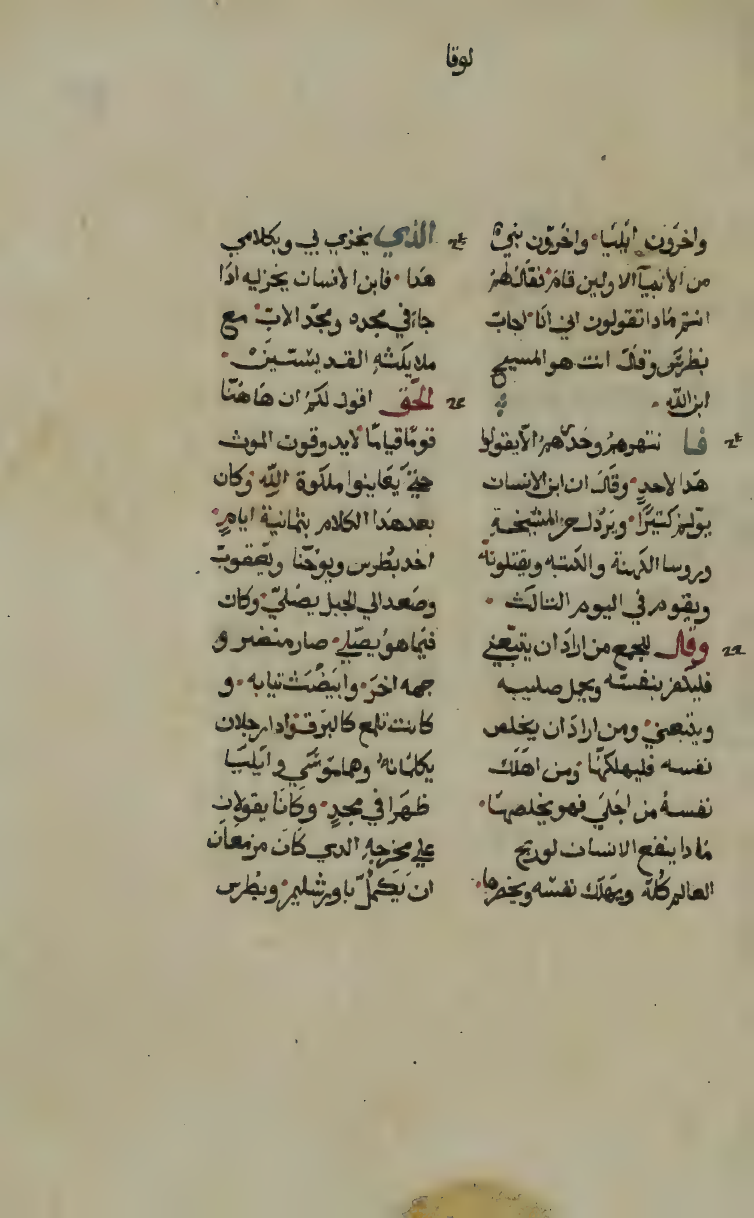 لوقا
واخرون ايليا واخرون نبي
من الانبيا الاولين قام فقال لهم
انتم مادا تقولون اني انا اجاب
بطرس وقال انت هو المسيح
ابن الله
فا نتهرهم وحدرهم الا يقولوا
هدا لاحد وقال ان ابن الانسان
يولم كتيرا ويردل من المشيخة
وروسا الكهنة والكتبه ويقتلونه
ويقوم في اليوم التالت
وقال للجمع من اراد ان يتبعني
فليكفر بنفسه ويحمل صليبه
ويتبعني ومن اراد ان يخلص
نفسه فليهلكها ومن اهلك
نفسه من اجلي فهو يخلصها
مادا ينفع الانسان لو ربح
العالم كله ويهلك نفسه ويخسرها
الذي يخزي بي وبكلامي
هدا فابن الانسان يخزيه ادا
جا في مجده ومجد الاب مع
ملايكته القديسين
الحق اقول لكم ان هاهنا
قوما قياما لا يدوقوت الموت
حتي يعاينوا ملكوة الله وكان
بعد هدا الكلام بتمانية ايام
اخد بطرس ويوحنا ويعقوب
وصعد الي الجبل يصلي وكان
فيما هو يصلي صار منضر و
جهه اخر وابيضت تيابه و
كانت تلمع كالبرق وادا رجلان
يكلمانه وهما موسي وايليا
ظهرا في مجد وكانا يقولان
علي مخرجه الدي كان مزمعان
ان يكمل باورشليم وبطرس